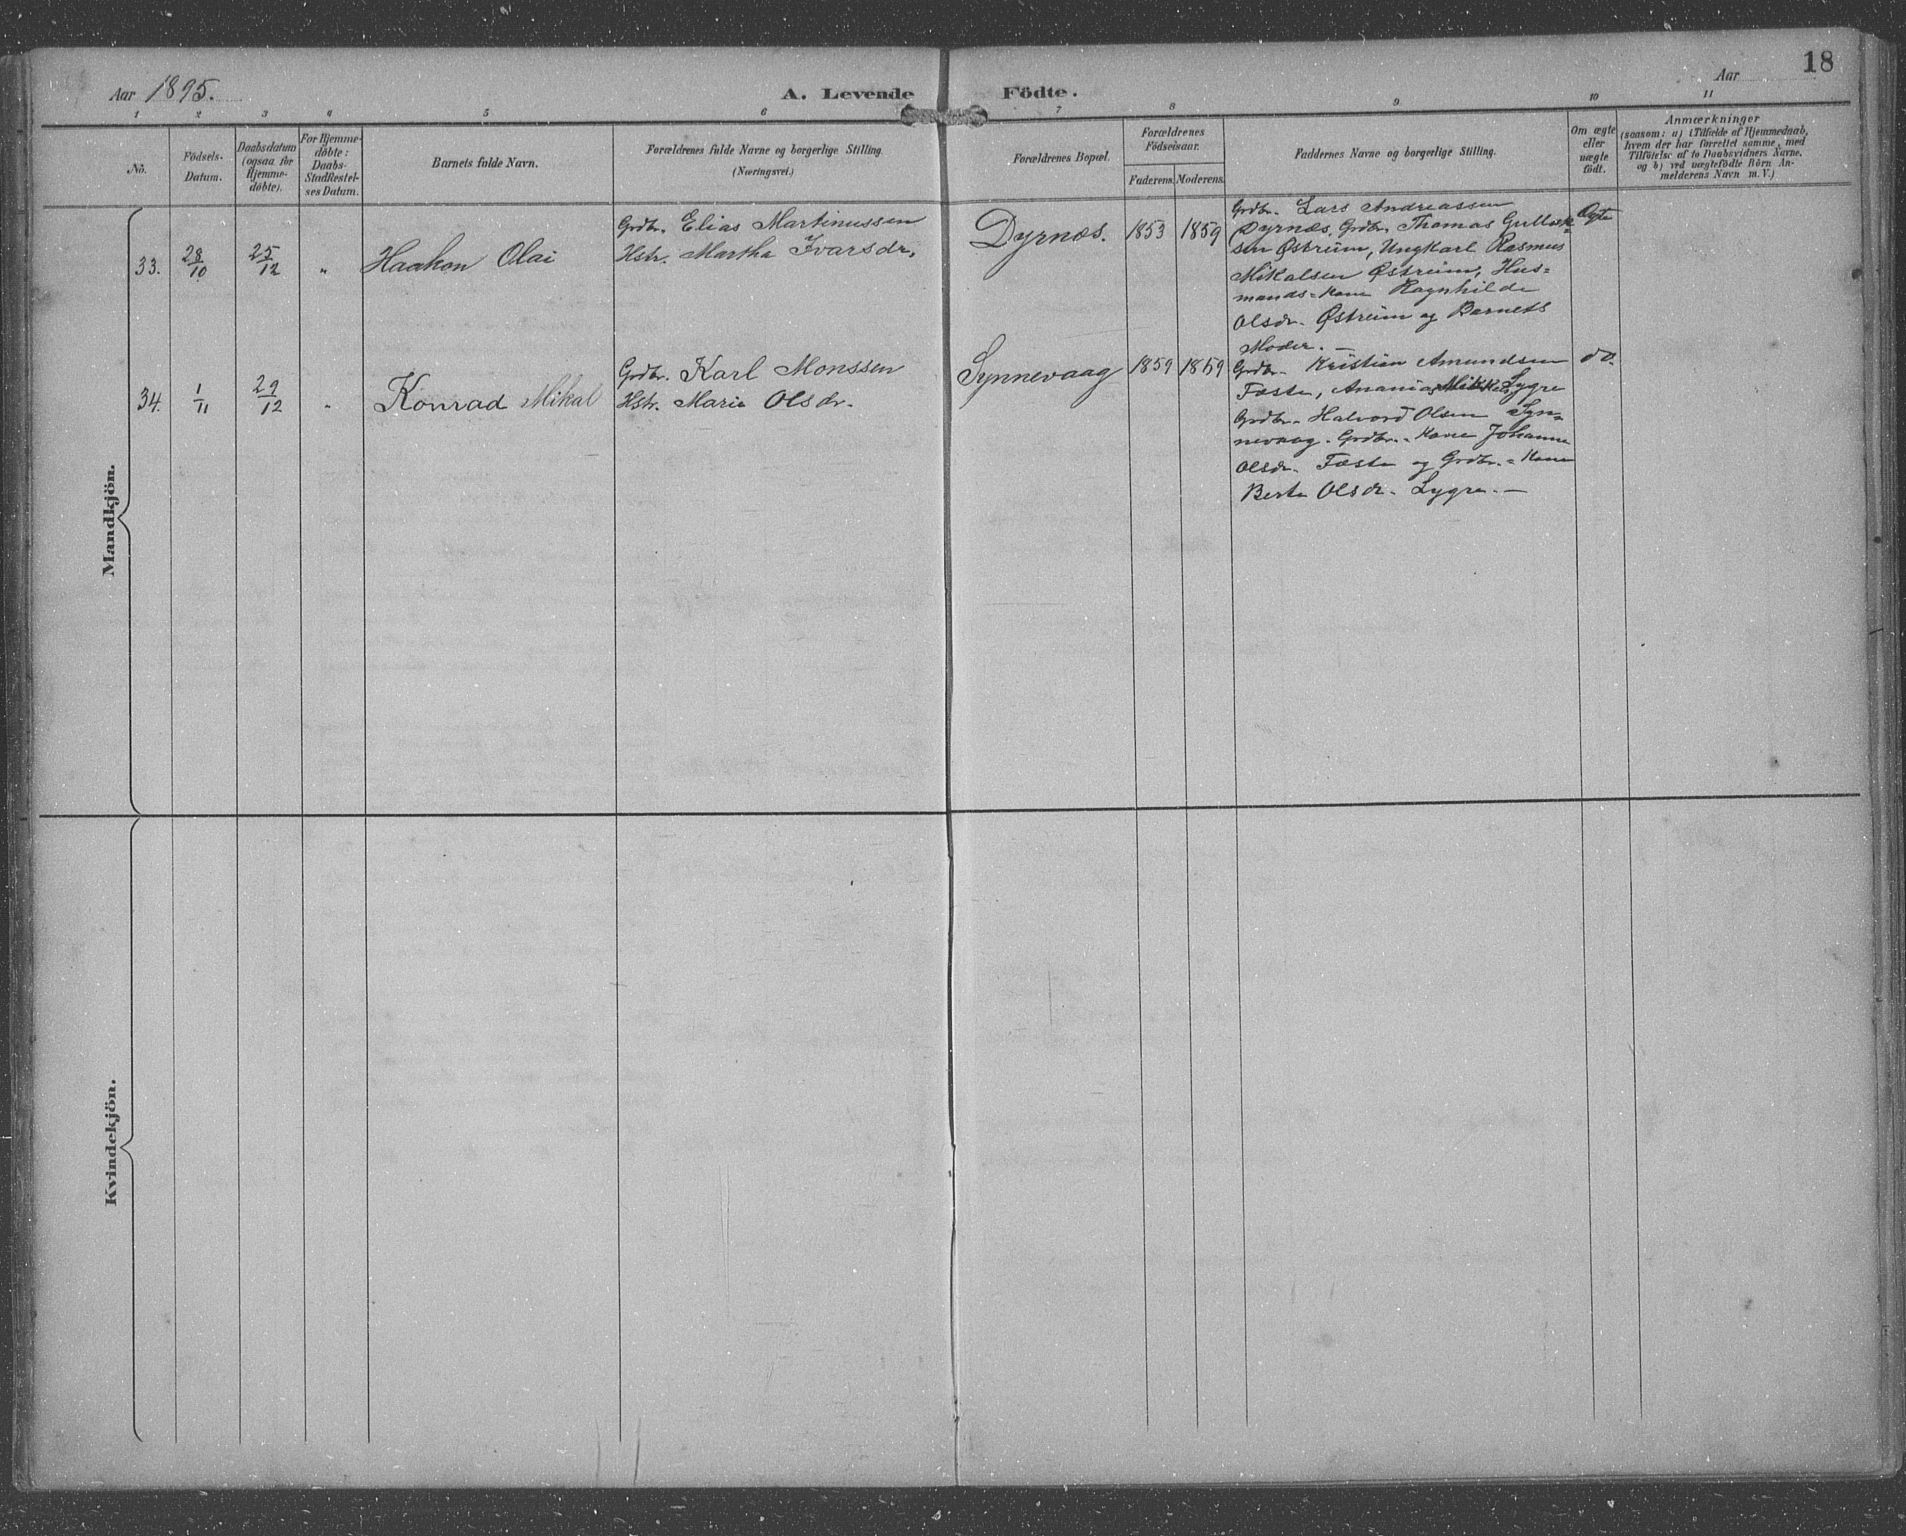 18
Aar 1895.
A. Levende Födte.
Aar
1 2 3 4 5 6 7 8 9 10 11
No.
Födsels-
Datum.
Daabsdatum
(ogsaa for
Hjemme-
döbte).
For Hjemme-
döbte:
Daabs-
Stadfæstel-
ses Datum.
Barnets fulde Navn.
Forældrenes fulde Navne og borgerlige Stilling
(Næringsvei.)
Forældrenes Bopæl.
Forældrenes
Födselsaar.
Faderens. Moderens.
Faddernes Navne og borgerlige Stilling.
Om ægte
eller
uægte
födt.
Anmærkninger
(saasom: a) i Tilfælde af Hjemmedaab,
hvem der har forrettet samme, med
Tilföielse af to Daabsvidners Navne,
og b) ved uægtefödte Börn An-
melderens Navn m. V.)
Mandkjön.
33. 28/10 25/12 " Haakon Olai
Grdbr. Elias Martinussen
Hstr. Martha Ivarsdr.
Dyrnæs. 1853 1859
Grdbr. Lars Andreassen
Dyrnæs, Grdbr. Thomas Gullak-
sen Østreim, Ungkarl Rasmus
Mikalsen Østreim, Hus-
mands-Kone Ragnhilde
Olsdr. Østreim og Barnets
Moder. —
Ægte
34. 1/11 29/12 " Konrad Mikal
Grdbr. Karl Monssen
Hstr. Marie Olsdr.
Synnevaag 1859 1859
Grdbr. Kristian Amundsen
Fæste, Ananias Lygre
Grdbr. Halvord Olsen Syn-
nevaag. Grdbr.-Kone Johanne
Olsdr. Fæste og Grdbr.-Kone
Berte Olsdr. Lygre. —
do.
Kvindekjön.